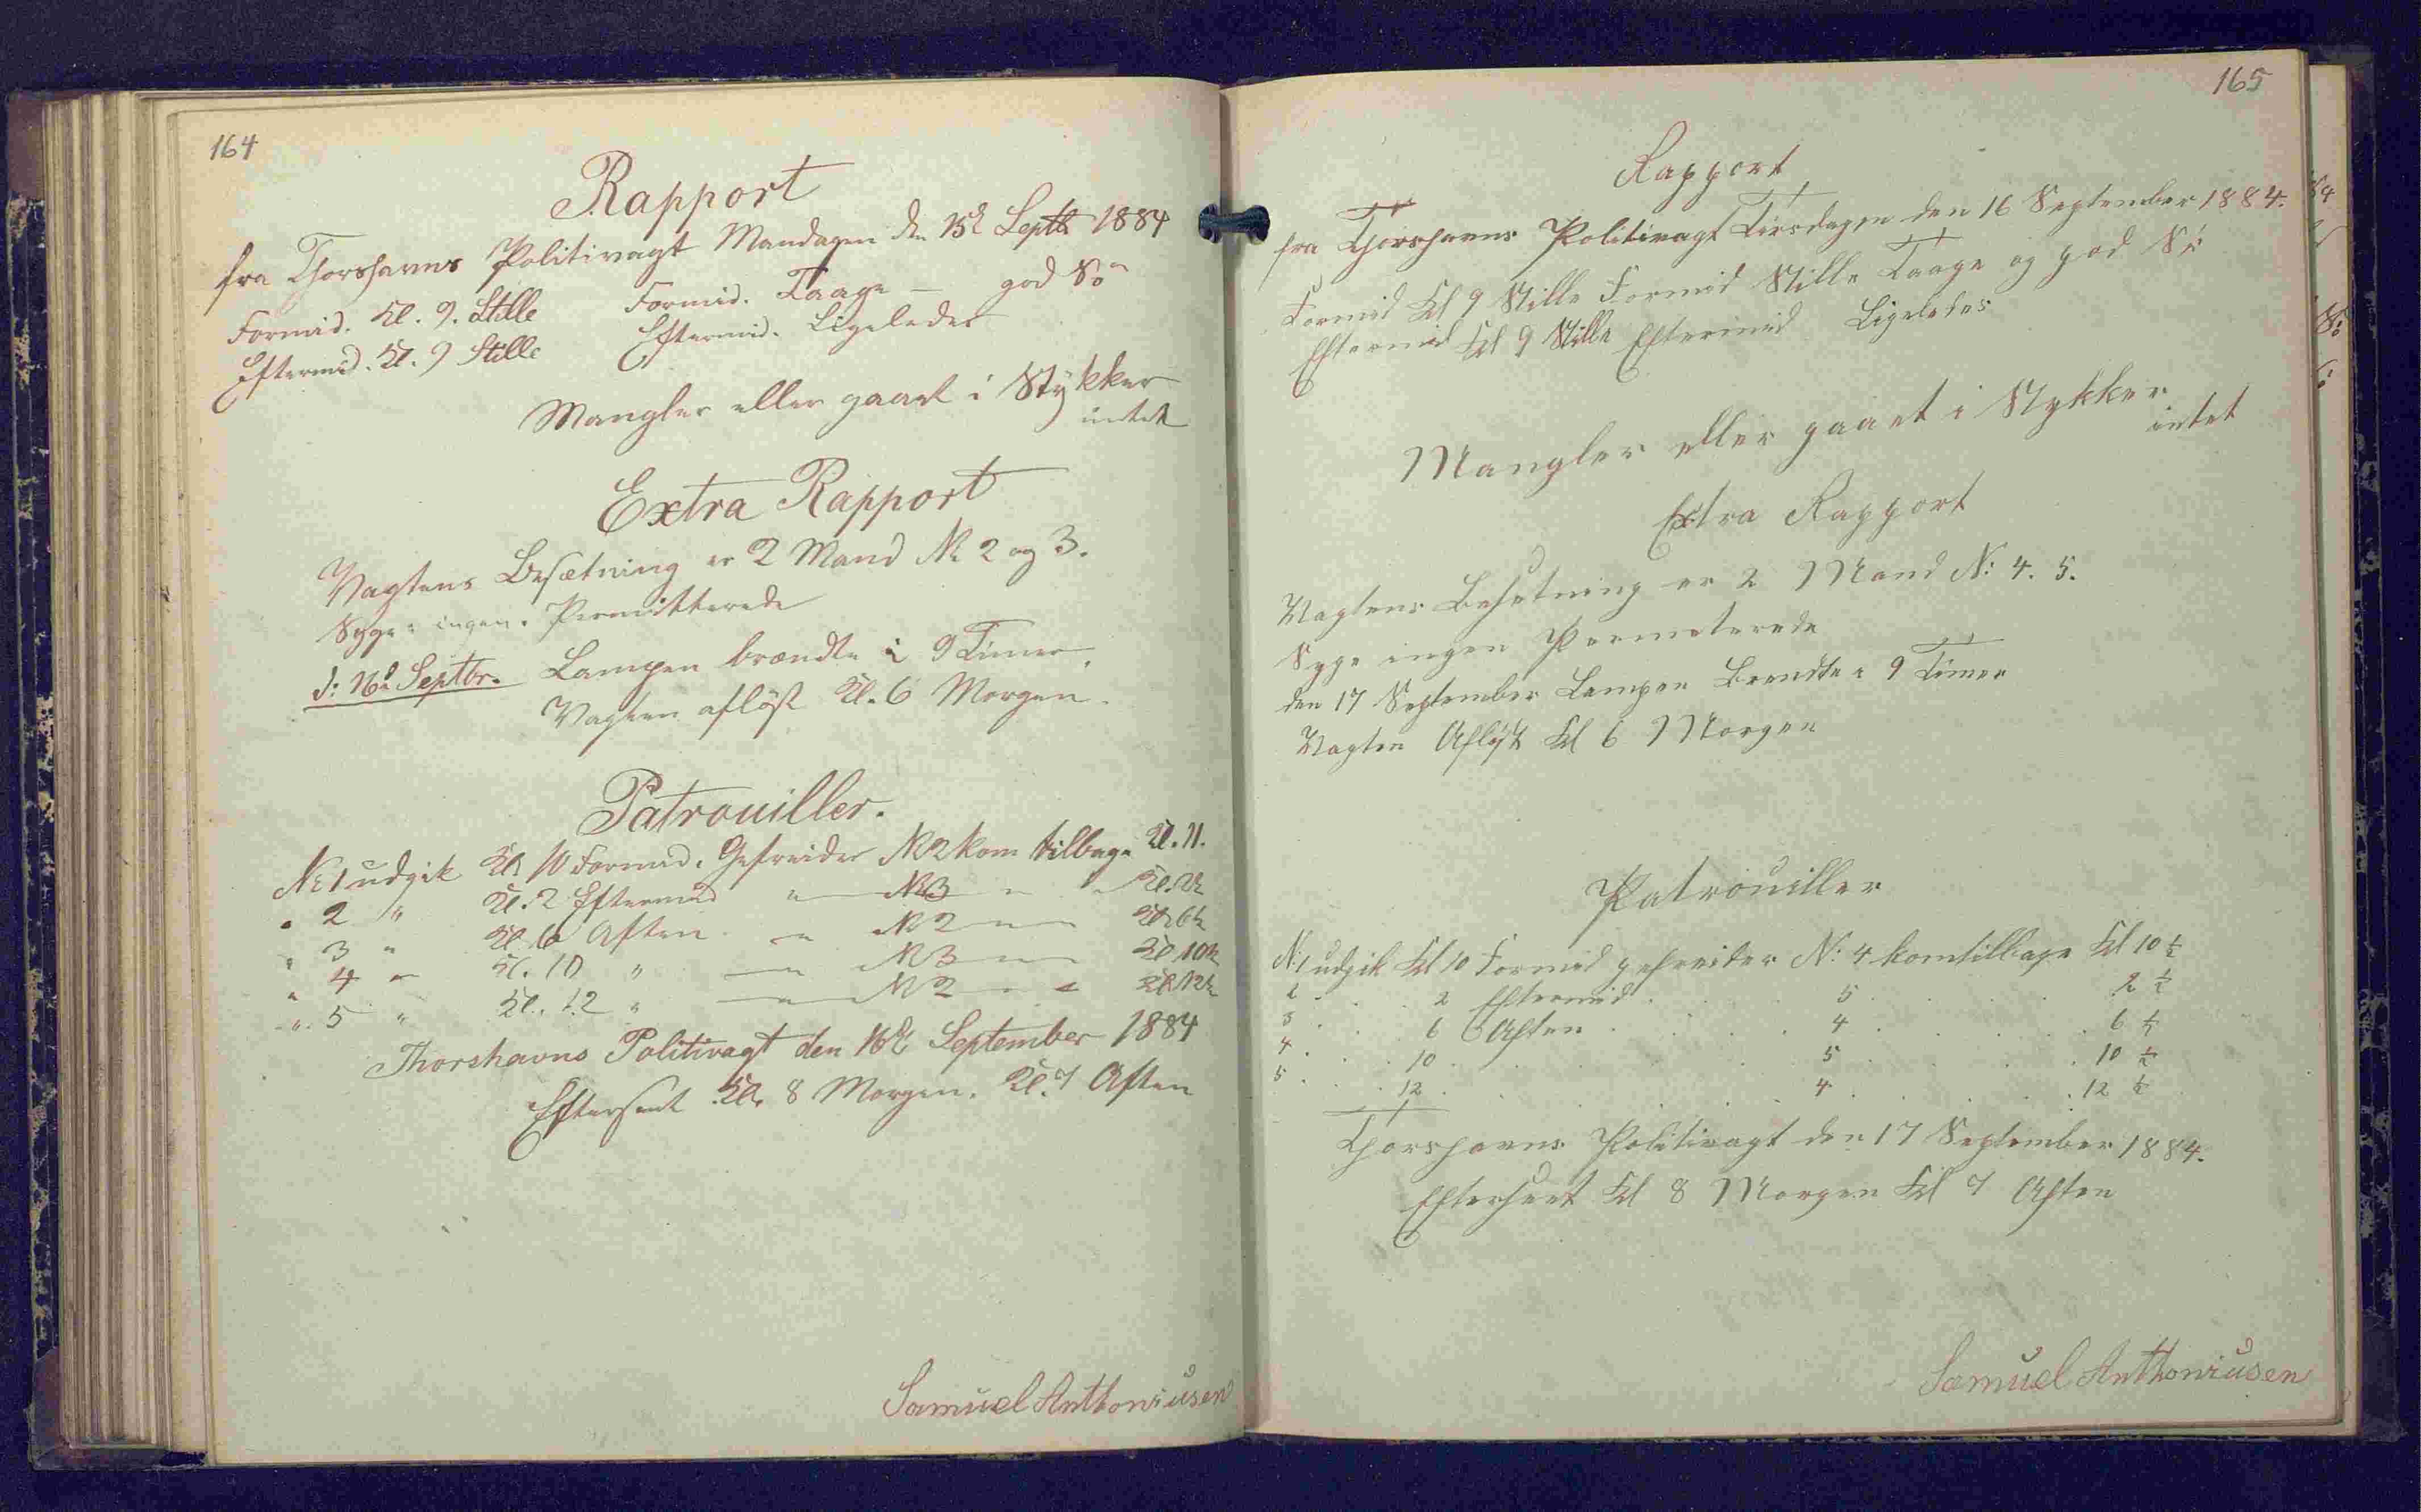 164
Rapport
fra Thorshavns Politivagt Mandagen d. 15d Septb 1884
Formid. Kl. 9. Stille Formid. Taage — god Sø
Eftermid. Kl. 9 Stille Eftermid. Ligeledes
Mangler eller gaaet i Stykker
intet
Extra Rapport
Vagtens Besætning er 2 Mand No 2 og 3.
Syge: ingen. Permitterede
d: 16d Septbr. Lampen brændte i 9 Timer
Vagten afløst Kl. 6 Morgen.
Patrouiller.
No 1 udgik Kl. 10 Formid. Gefreider No 2 kom tilbage Kl. 11.
" 2 " Kl. 2 Eftermid " No 3 " " Kl. 2½
" 3 " Kl. 6 Aften " No 2 " Kl. 6½
" 4 " Kl. 10 " " No 3 " Kl. 10½
" 5 " Kl. 12 " " No 2 " " Kl. 12½
Thorshavns Politivagt den 16d September 1884
Efterseet Kl. 8 Morgen. Kl. 7 Aften
Samuel Anthoniusen
165
Rapport
fra Thorshavns Politivagt Tirsdagen den 16 September 1884.
Formid Kl 9 Stille Formid Stille Taage og god Sø
Eftermid Kl 9 Stille Eftermid Ligeledes
Mangler eller gaaet i Stykker
intet
Extra Rapport
Vagtens Besetning er 2 Mand N: 4. 5.
Syge ingen Permeterede
den 17 September Lampen Brendte i 9 Timer
Vagten Afløst Kl 6 Morgen
Patrouiller
N: 1 udgik Kl 10 Formid gefreider N: 4 kom tilbage Kl 10 ½
2 . . . 2 Eftermid . . . 5 . . . 2 ½
3 . . . 6 Aften . . . 4 . . . 6 ½
4 . . . 10 . . . 5 . . . 10 ½
5 . . . 12 . . . 4 . . . 12 ½
Thorshavns Politivagt den 17 September 1884.
Efterseet Kl 8 Morgen Kl 7 Aften
Samuel Anthoniusen